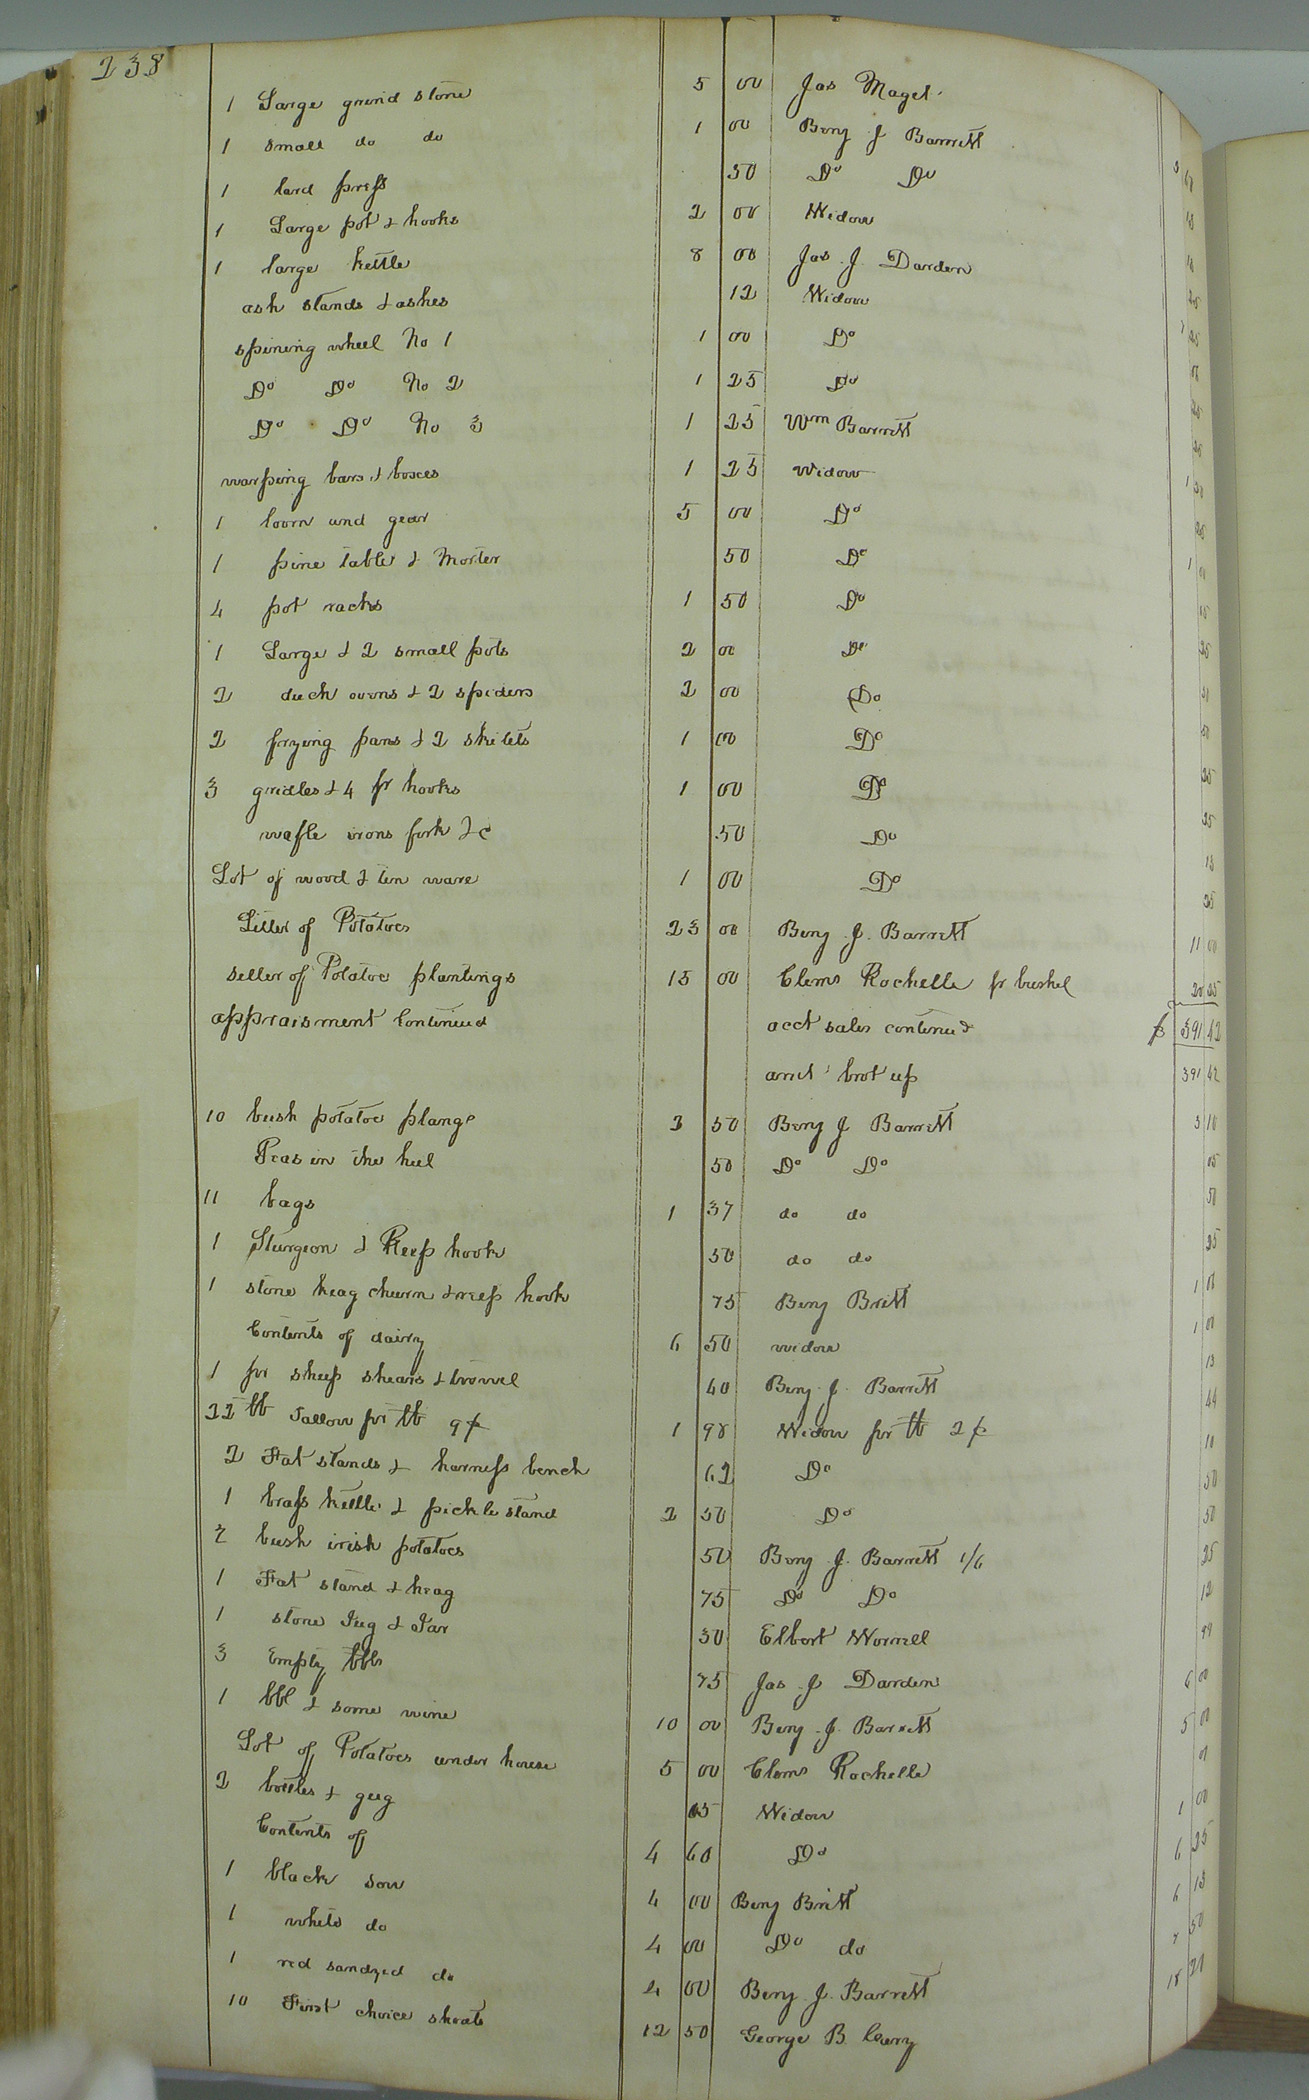 238
1 Large grind stone 5 00 Jas Maget
1 small do do 1 00 Benj J Barrett
1 lard press 50 Do Do
1 Large pot & hooks 2 00 Widow
1 large kettle 8 00 Jas J. Darden
ash stands & ashes 12 Widow
spining wheel No 1 1 00 Do
Do Do No 2 1 25 Do
Do Do No 3 1 25 Wm Barrett
warping bars & boxes 1 25 Widow
1 loom and gear 5 00 Do
1 pine table & Morter 50 Do
4 pot racks 1 50 Do
1 Large & 2 small pots 2 00 Do
2 duch ovens & 2 spiders 2 00 Do
2 frying pans & 2 skilets 1 00 Do
3 gridles & 4 pr hooks 1 00 Do
wafle irons fork &c 50 Do
Lot of wood & tin ware 1 00 Do
of Potatoes 23 00 Benj J. Barrett 11 00
seller of Potatoe plantings 15 00 Clems Rochelle pr bushel 20 25
appraisment Continued acct sales continued $ 391 42
amt brot up 391 42
10 bush potatoe plangs 3 50 Benj J Barrett 3 10
Peas in the hul 50 Do Do 05
11 bags 1 37 do do 50
1 Sturgeon & Reep hook 50 do do 25
1 stone keag churn & reep hook 75 Benj Britt 1
Contents of dairy 6 50 widow 1 00
1 pr sheep shears & trowel 40 Benj J. Barrett 13
22 lb Tallow pr lb 9 ¢ 1 98 Widow pr lb 2 ¢ 44
2 Fat stands & harness bench 62 Do 10
1 brass kettle & pickle stand 2 50 Do 50
2 bush irish potatoes 50 Benj J. Barrett 1/6 50
1 Fat stand & keag 75 Do Do 25
1 stone Jug & Jar 30 Elbert Worrell 12
3 Empty bbls 75 Jas J Darden
1 bbl & some wine 10 00 Benj J. Barrett 6 00
Lot of Potatoes under house 5 00 Clems Rochelle 5 00
2 bottles & gug 05 Widow
Contents of 4 60 Do 1 00
1 black sow 4 00 Benj Britt 6 25
1 white do 4 00 Do do 6 13
1 red sandyed do 4 00 Benj J. Barrett 50
10 First choice shoats 12 50 George B. Cary 18 21